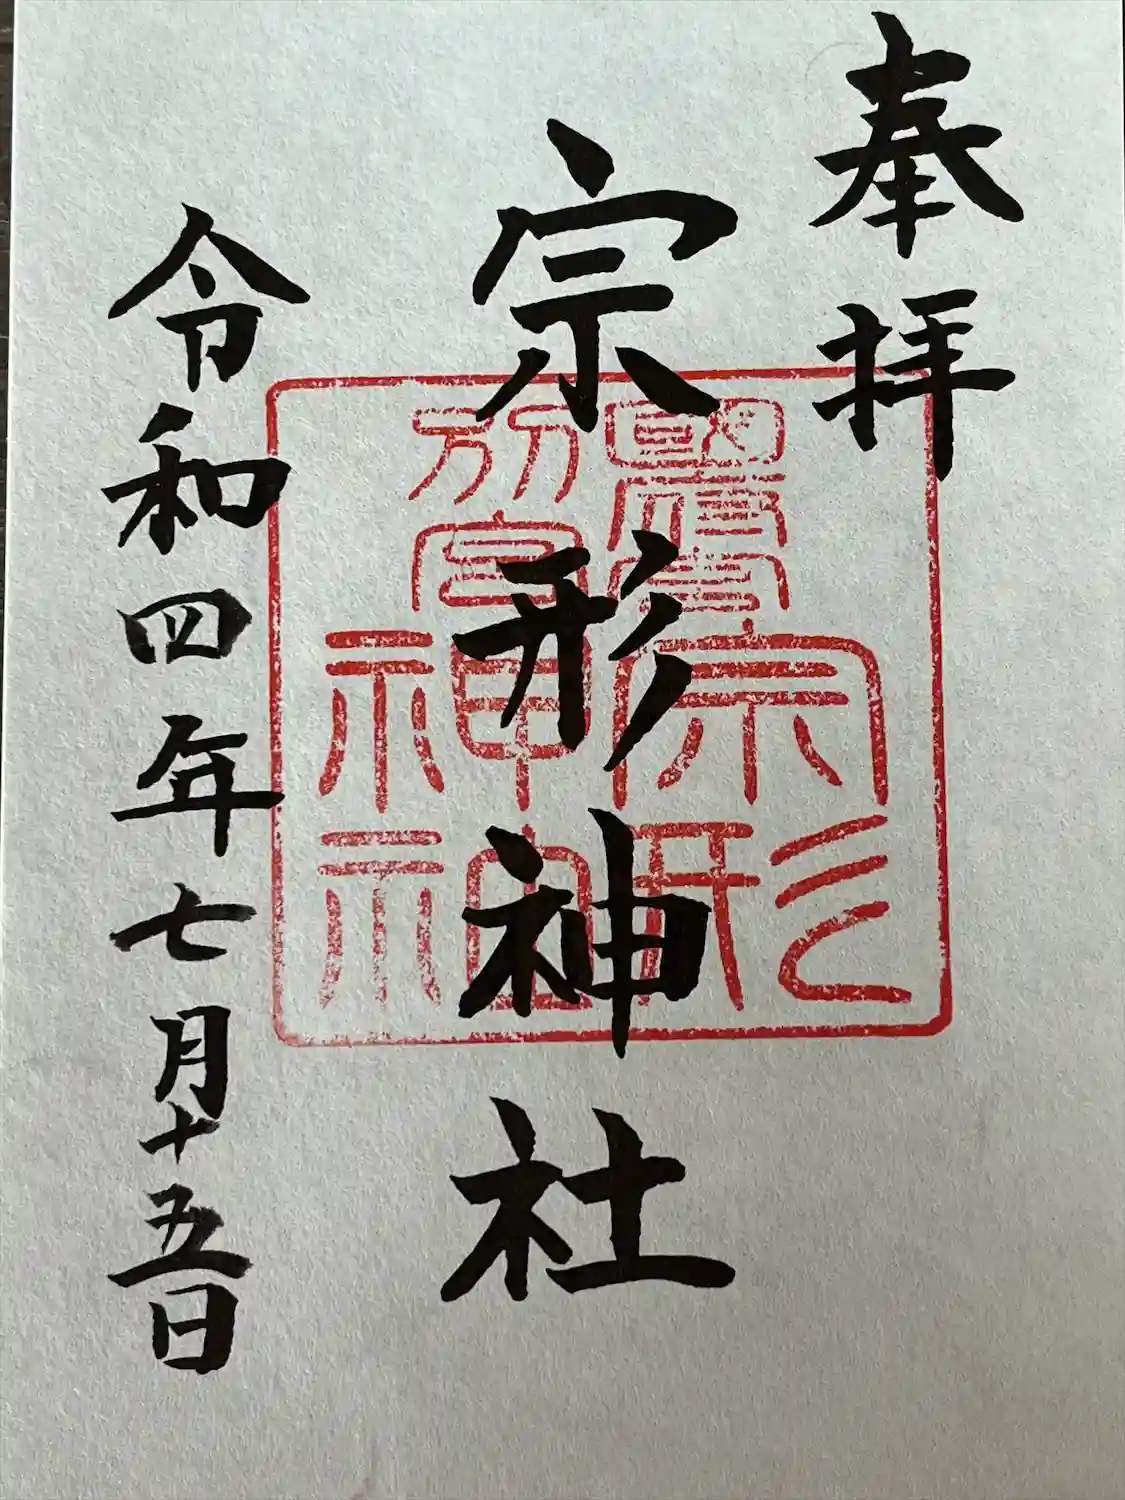 奉拝
宗形神社
令和四年七月十五日
宗形
神社